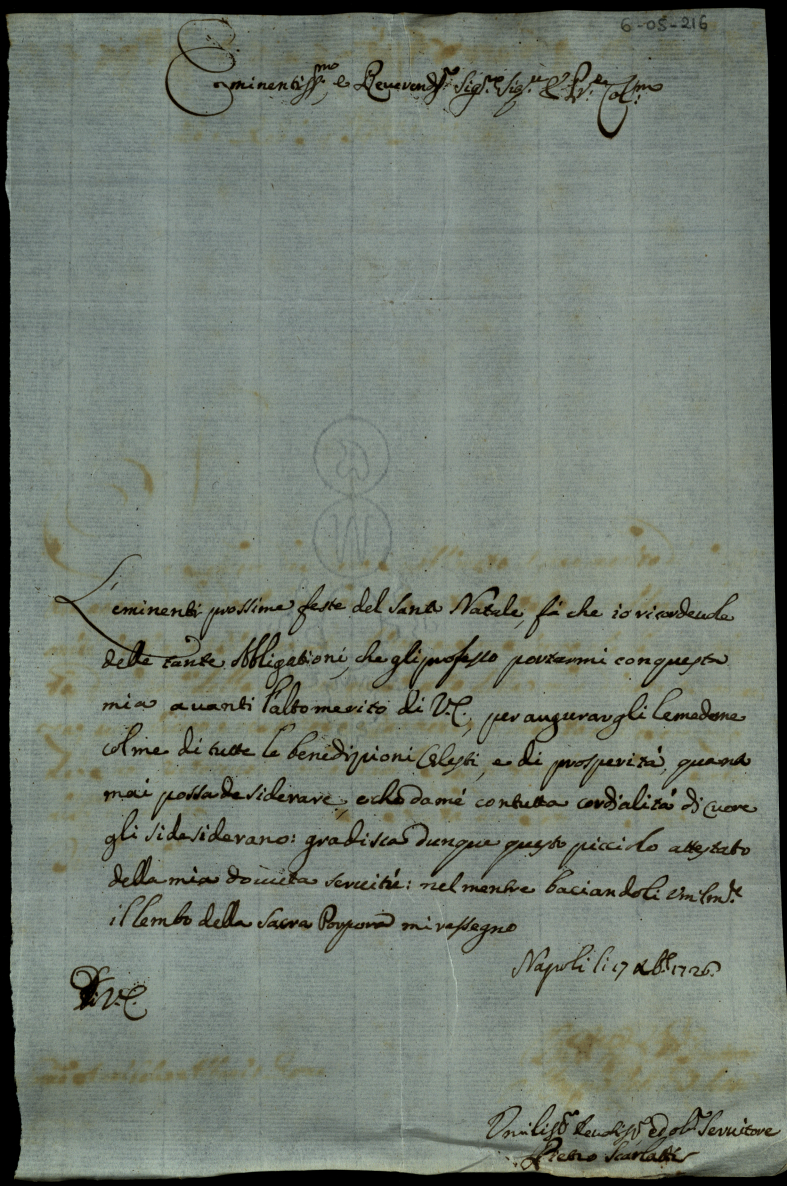 6-05-216
Eminentiss.mo e Reverendss.mo Sig.re Sig.re e P.ne Col.mo
L'eminenti prossime feste del Santo Natale, fà che io ricordeuole
delle tante obbligationi, che gli professo portarmi con questa
mia auanti l'alto merito di V.E., per augurargli le medeme
colme di tutte le benedizioni Celesti, e di prosperità, quanto
mai possa desiderare, e che da mé con tutta cordialità di Cuore
gli si desiderano: gradisca dunque questo picciolo attestato
della mia douuta seruitù: nel mentre baciandoli umilm.te
il lembo della Sacra Porpora mi rassegno
Napoli li 17 Xbre 1726.
Di V.E.
Umiliss.mo Deuotiss.mo ed obl.mo Seruitore
Pietro Scarlatti